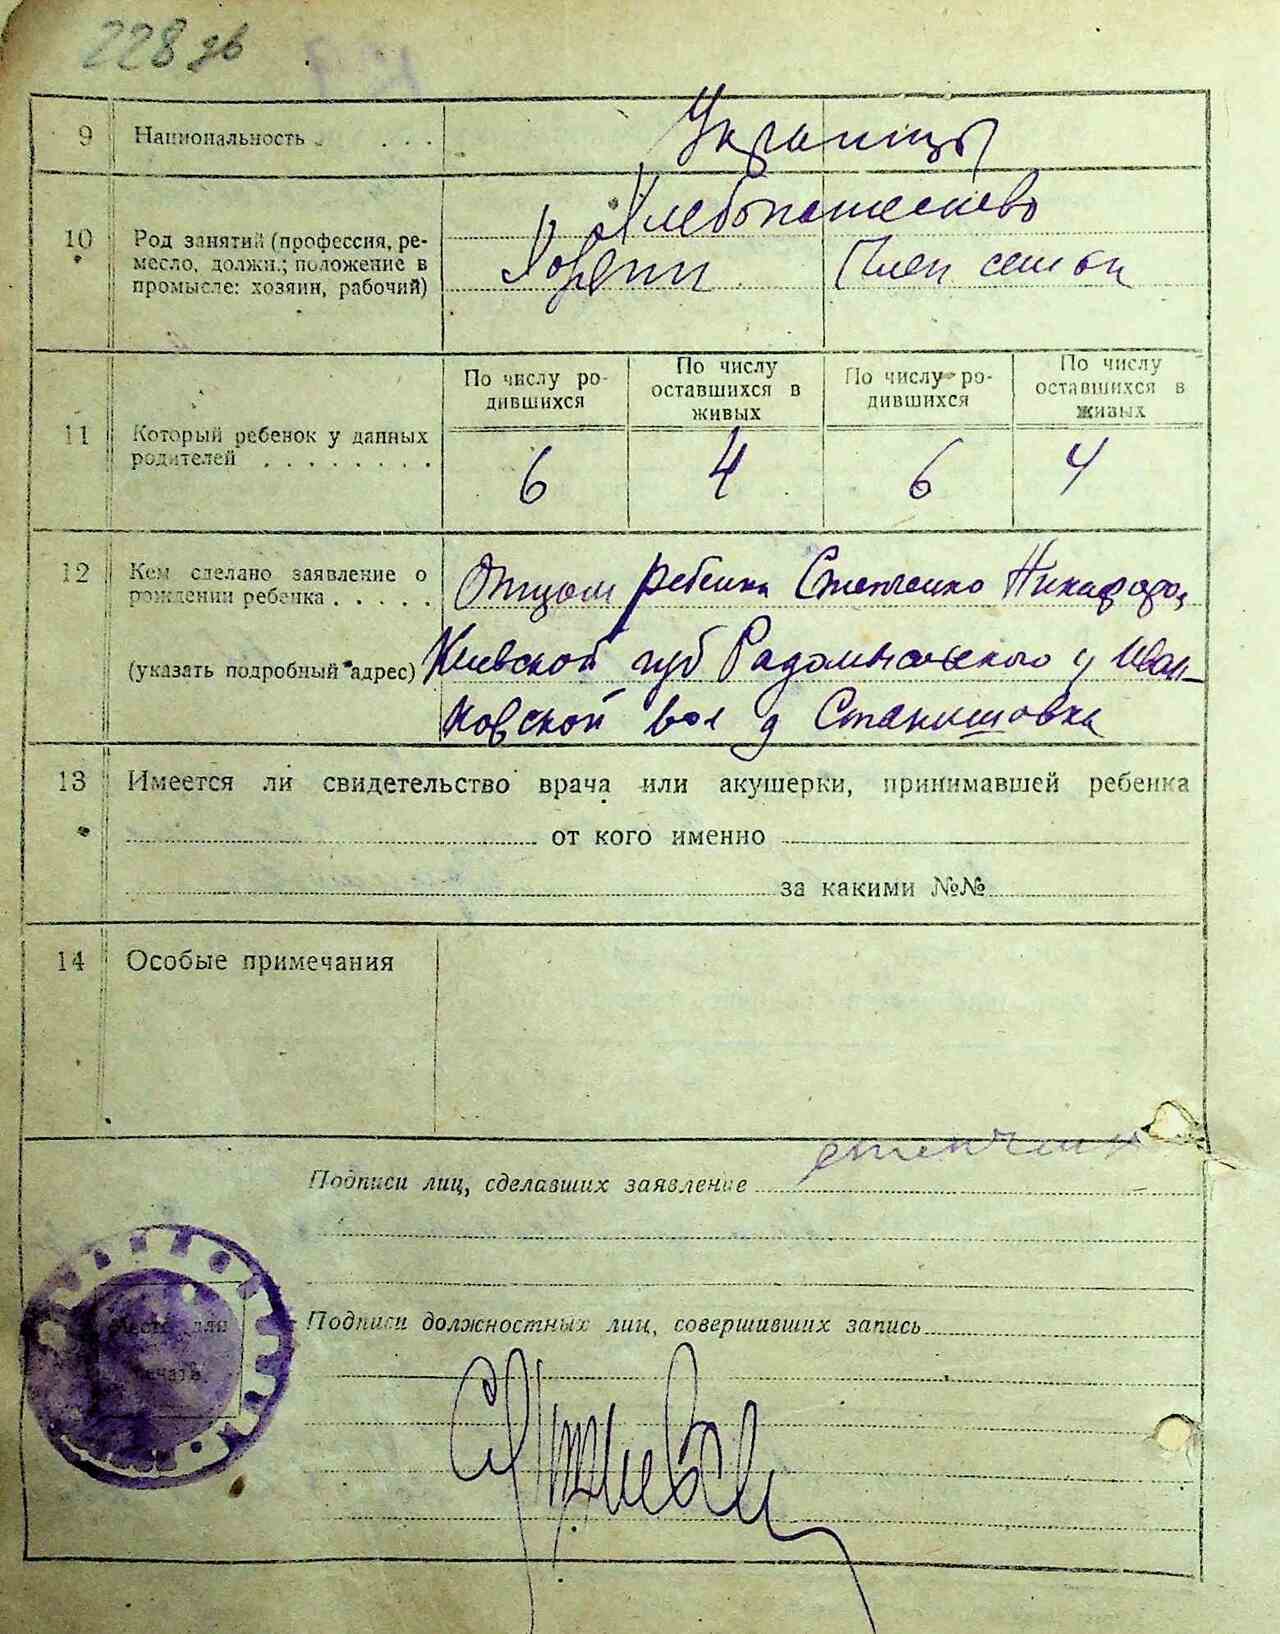 228 зв
9 Национальность . . . . Украинцы
Хлебопашество
10 Род занятий (профессия, ре-
месло, должн.; положение в
промысле: хозяин, рабочий)
Хозяин Член семьи
11 Который ребенок у данных
родителей . . . . . . . .
По числу ро-
дившихся
По числу
оставшихся в
живых
По числу ро-
дившихся
По числу
оставшихся в
живых
6 4 6 4
12 Кем сделано заявление о
рождении ребенка . . . . .
(указать подробный адрес)
Отцом ребенка Степченко Никифором
Киевской губ Радомысльского у Иван-
ковской вол д Станишовка
13 Имеется ли свидетельство врача или акушерки, принимавшей ребенка
от кого именно
за какими №№
14 Особые примечания
Подписи лиц, сделавших заявление
Подписи должностных лиц, совершивших запись
Место для
печати